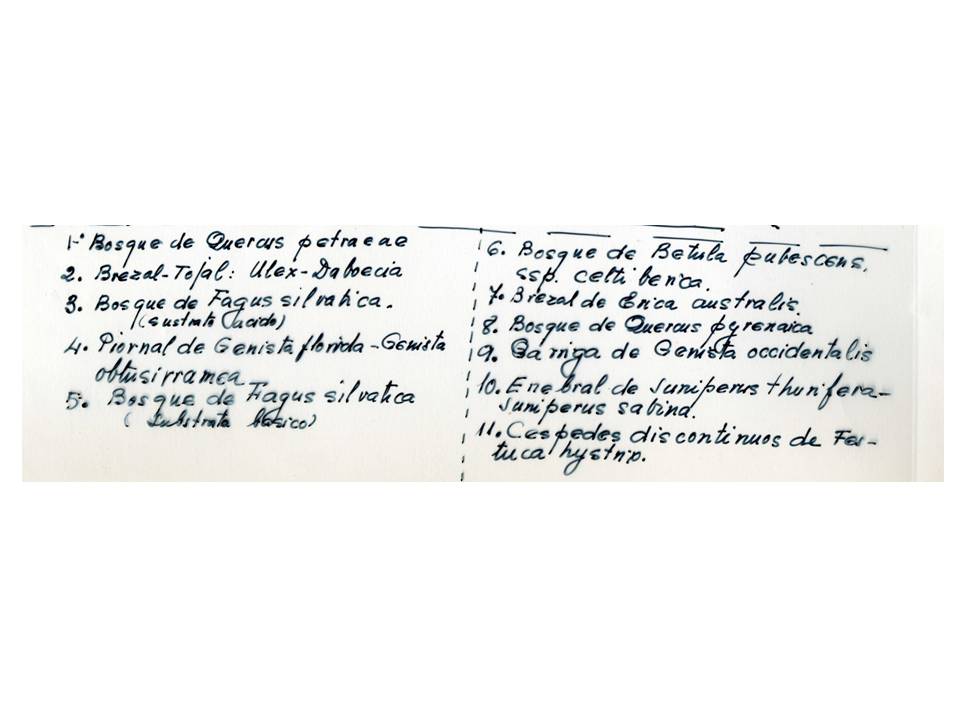 1.º Bosque de Quercus petraeae
2. Brezal-Tojal: Ulex-Daboecia
3. Bosque de Fagus silvatica.
(Sustrato ácido)
4. Piornal de Genista florida-Genista
obtusirramea
5. Bosque de Fagus silvatica
(Substrato básico)
6. Bosque de Betula pubescens,
ssp. celtiberica.
7. Brezal de Erica australis.
8. Bosque de Quercus pyrenaica
9. Garriga de Genista occidentalis
10. Enebral de Juniperus thurifera-
Juniperus sabina.
11. Cespedes discontinuos de Fes-
tuca hystrip.